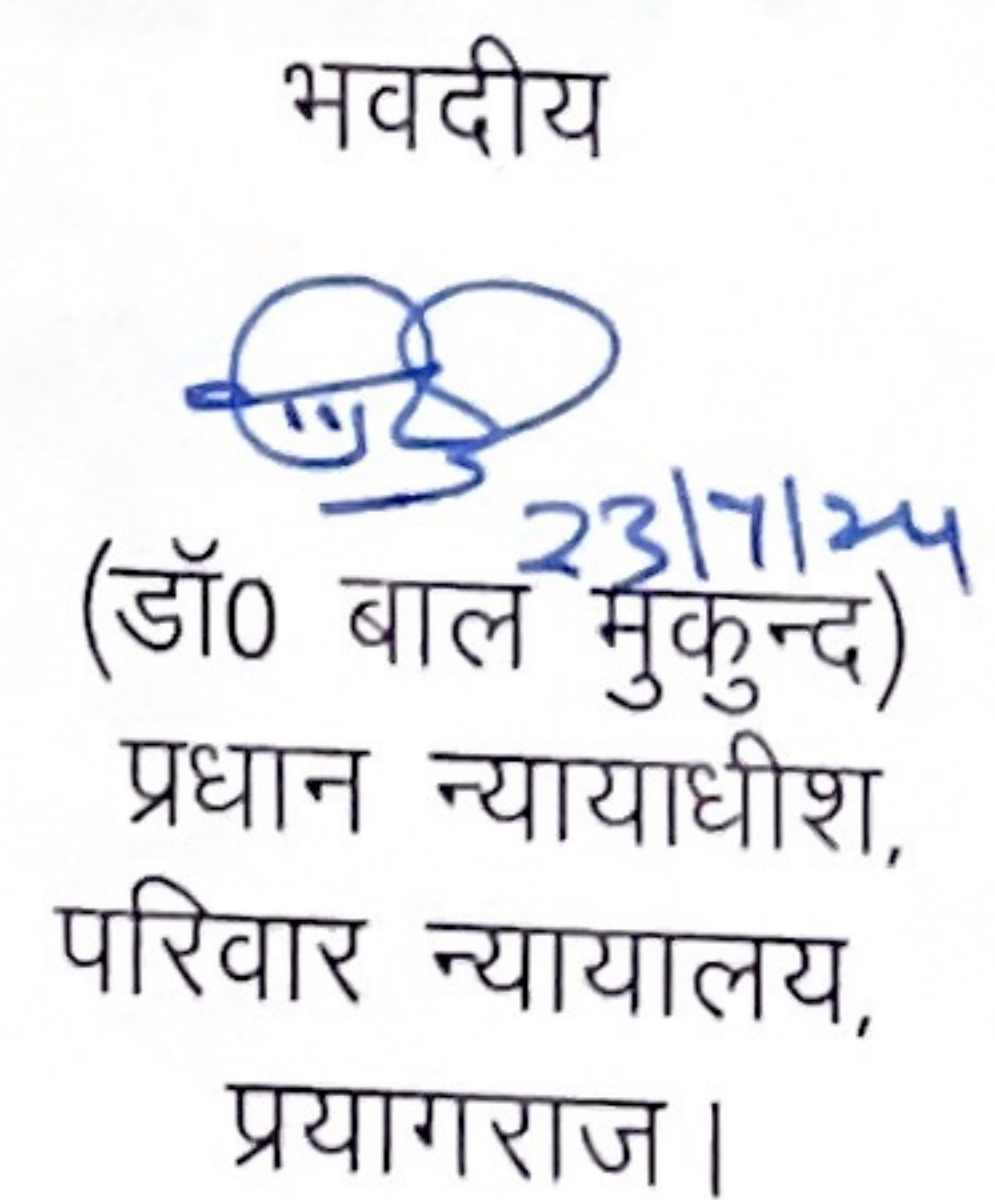 भवदीय
23/7/24
(डॉ0 बाल मुकुन्द)
प्रधान न्यायाधीश,
परिवार न्यायालय,
प्रयागराज।